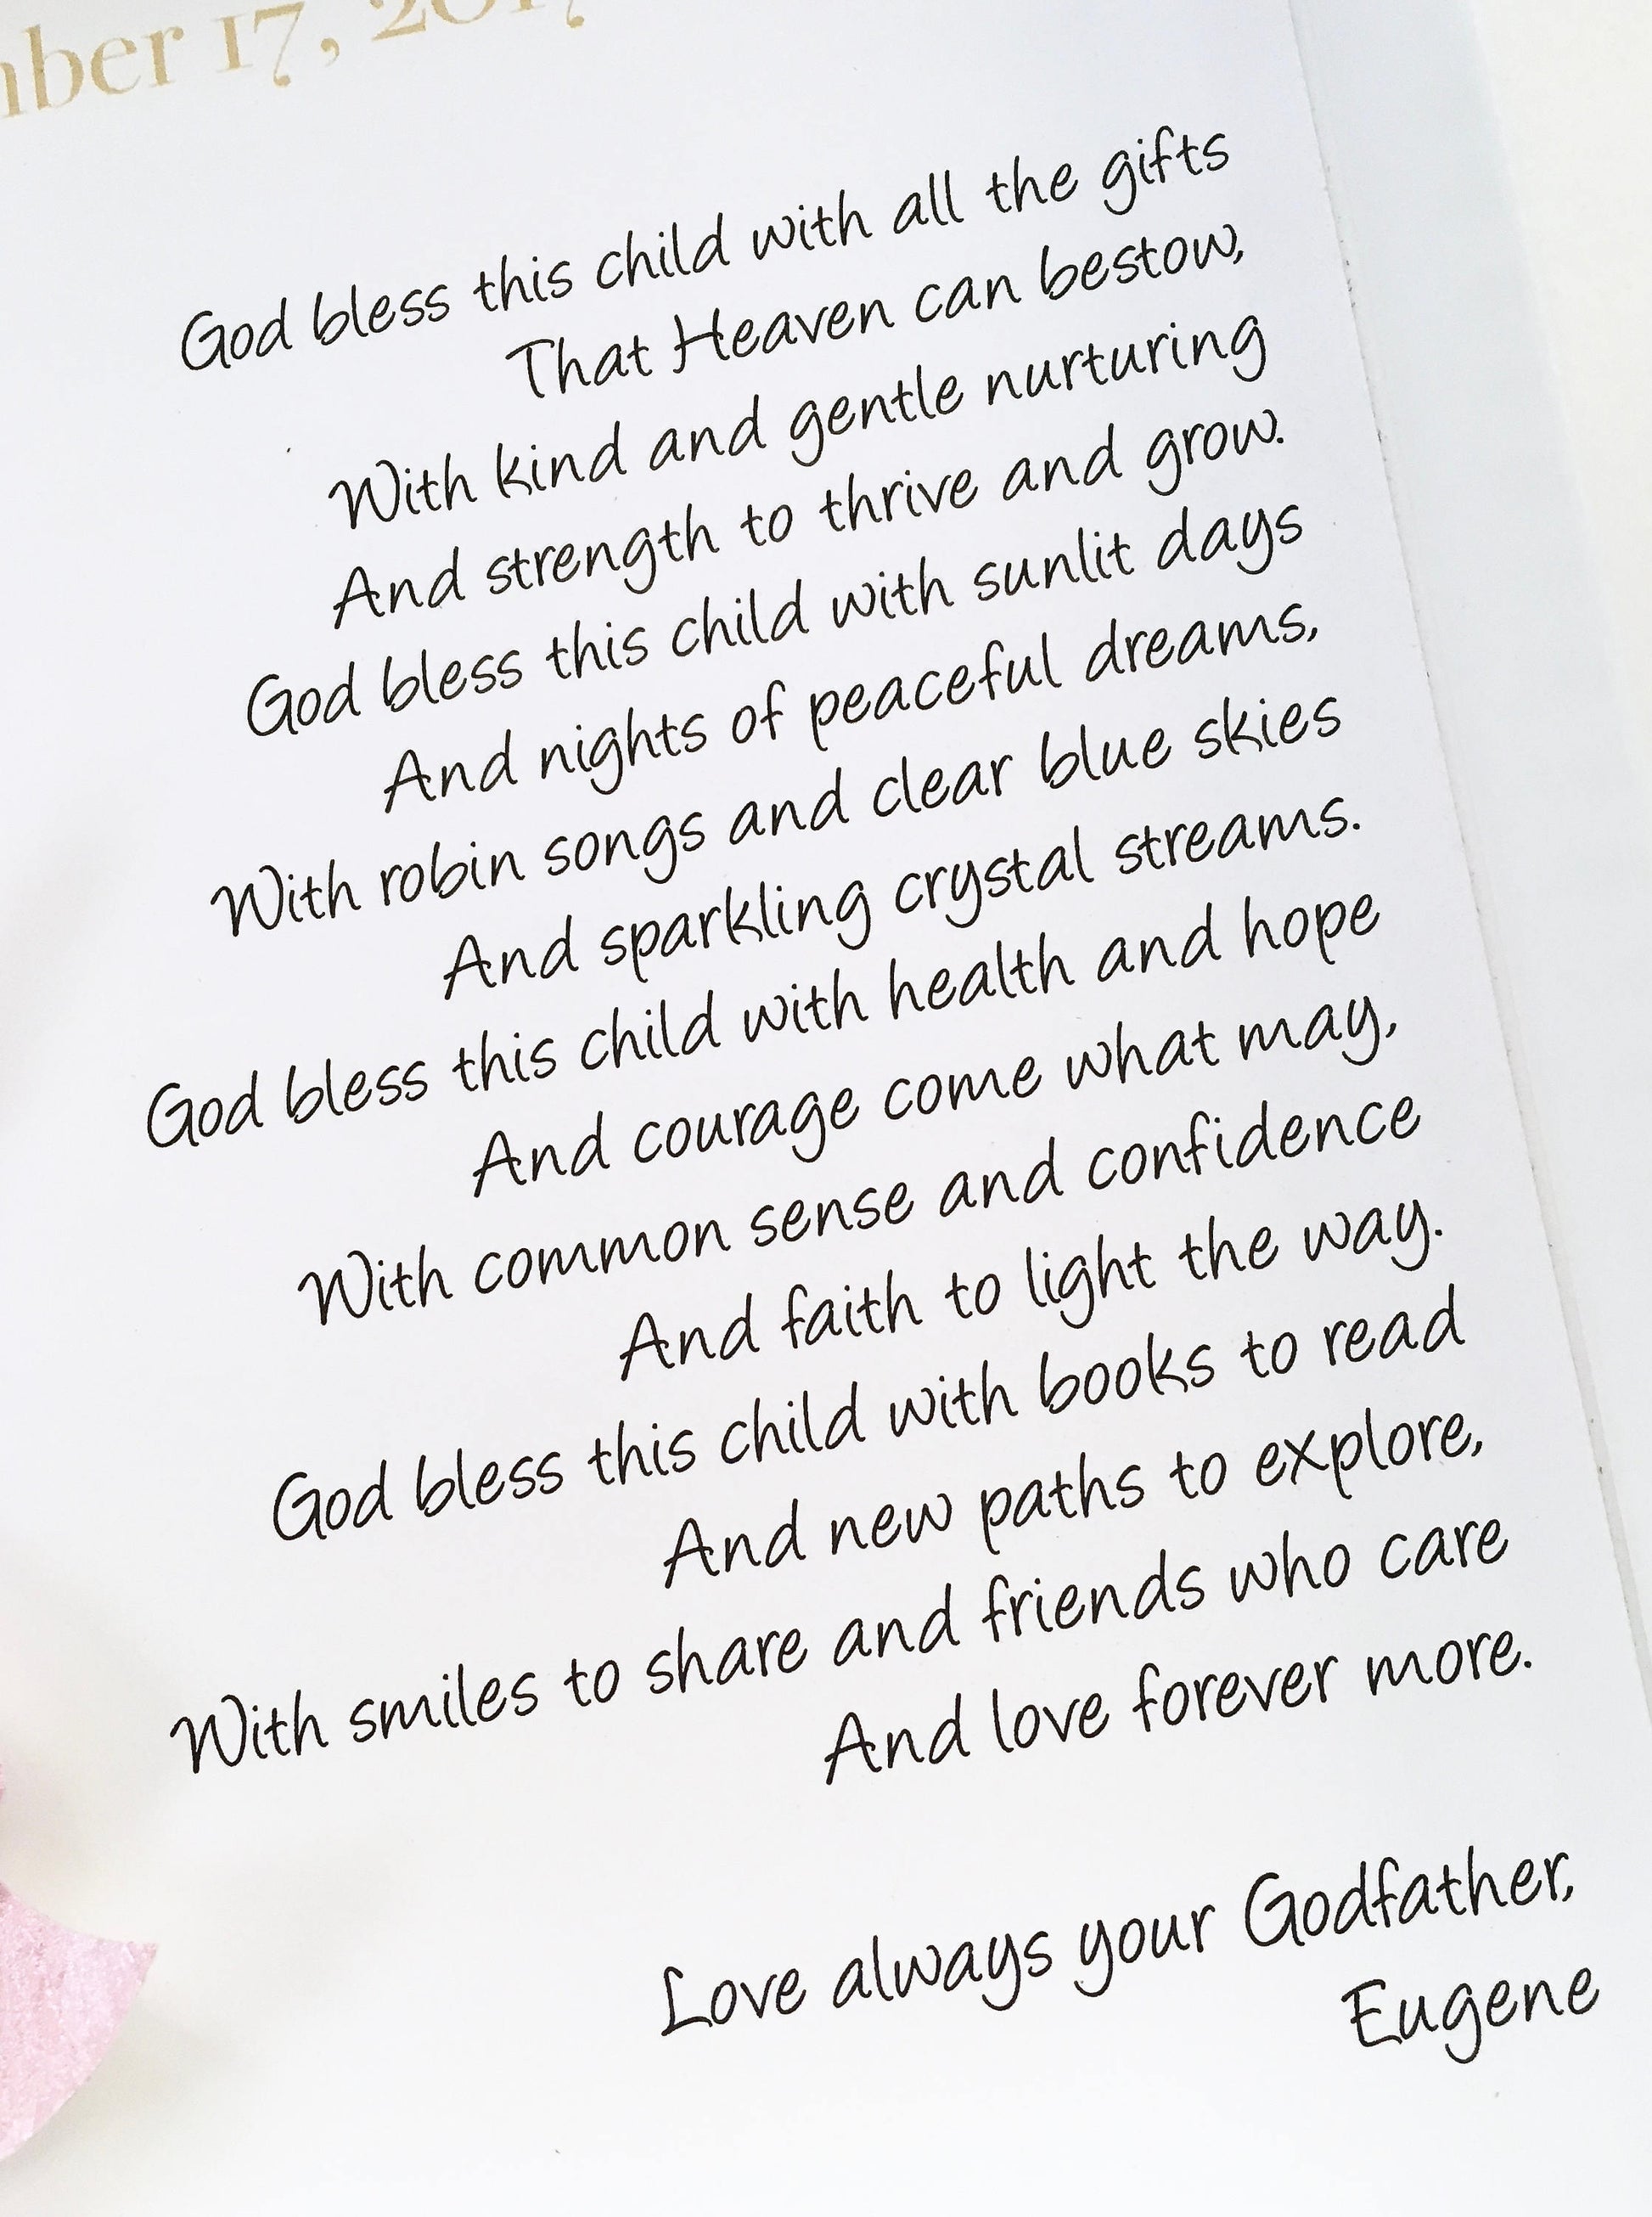 17,
God bless this child with all the gifts
That Heaven can bestow,
With kind and gentle nurturing
And strength to thrive and grow.
God bless this child with sunlit days
And nights of peaceful dreams,
With robin songs and clear blue skies
And sparkling crystal streams.
God bless this child with health and hope
And courage come what may,
With common sense and confidence
And faith to light the way.
God bless this child with books to read
And new paths to explore,
With smiles to share and friends who care
And love forever more.
Love always your Godfather,
Eugene